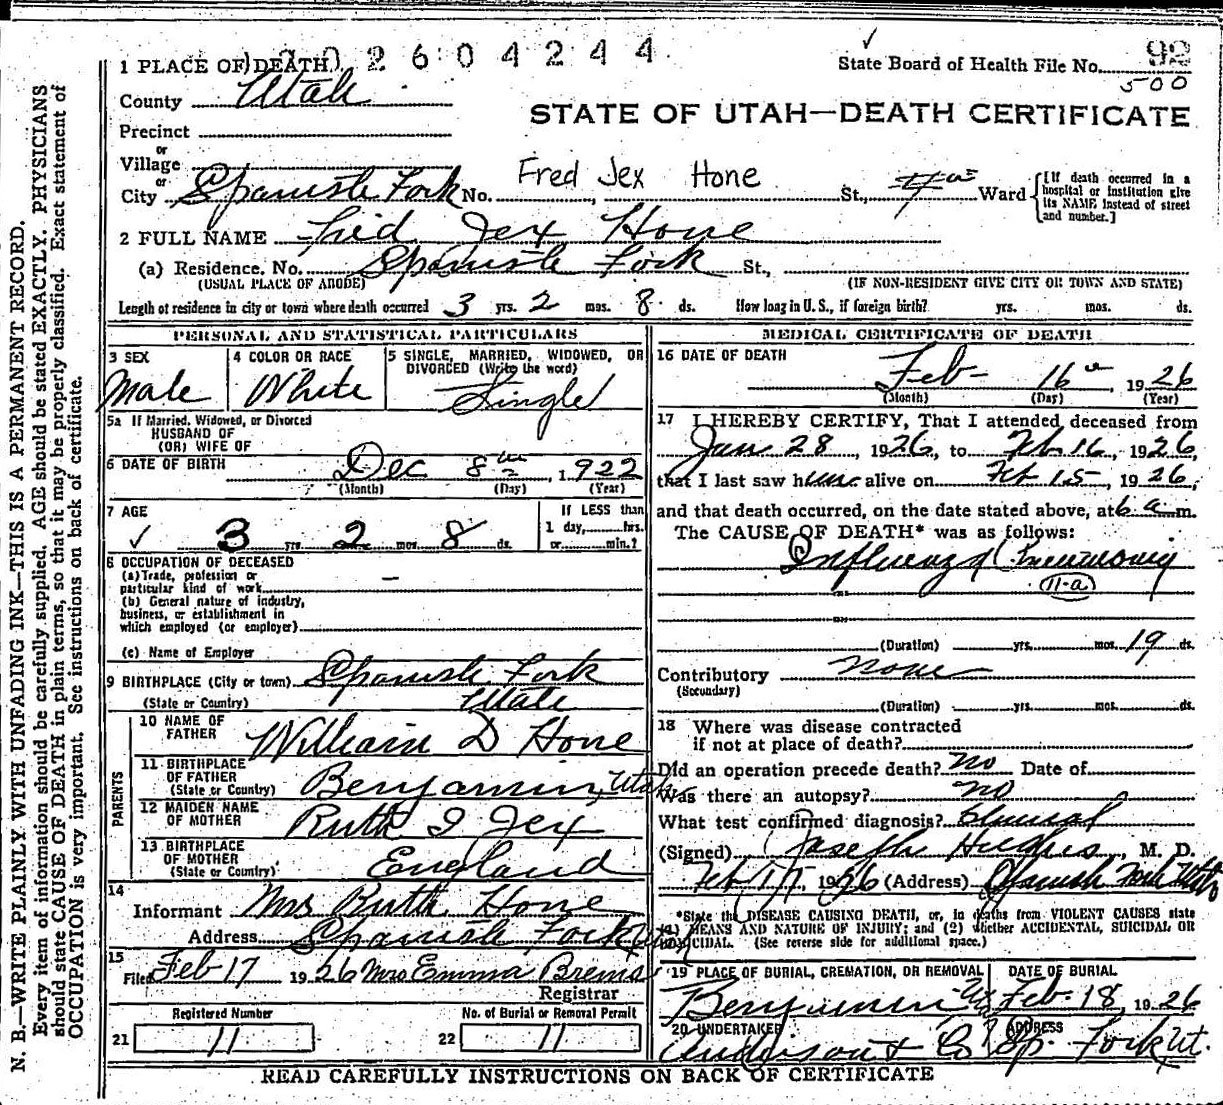 2604244
1 PLACE OF DEATH
State Board of Health File No. 92
500
County Utah
STATE OF UTAH—DEATH CERTIFICATE
Precinct
or
Village
or
City Spanish Fork No. Fred Jex Hone St., Ward
[If death occurred in a hospital or institution give its NAME instead of street and number.]
2 FULL NAME Fred Jex Hone
(a) Residence. No. Spanish Fork St.,
(USUAL PLACE OF ABODE) (IF NON-RESIDENT GIVE CITY OR TOWN AND STATE)
Length of residence in city or town where death occurred 3 yrs. 2 mos. 8 ds. How long in U. S., if foreign birth? yrs. mos. ds.
PERSONAL AND STATISTICAL PARTICULARS
3 SEX
Male
4 COLOR OR RACE
White
5 SINGLE, MARRIED, WIDOWED, OR DIVORCED (Write the word)
Single
5a If Married, Widowed, or Divorced
HUSBAND OF
(OR) WIFE OF
6 DATE OF BIRTH Dec 8th 1922
(Month) (Day) (Year)
7 AGE
3 yrs. 2 mos. 8 ds.
If LESS than
1 day, hrs.
or min.?
8 OCCUPATION OF DECEASED
(a) Trade, profession or
particular kind of work —
(b) General nature of industry,
business, or establishment in
which employed (or employer)
(c) Name of Employer
9 BIRTHPLACE (City or town) Spanish Fork
(State or Country) Utah
PARENTS
10 NAME OF
FATHER William D Hone
11 BIRTHPLACE
OF FATHER
(State or Country) Benjamin, Utah
12 MAIDEN NAME
OF MOTHER Ruth I Jex
13 BIRTHPLACE
OF MOTHER
(State or Country) England
14
Informant Mrs Ruth Hone
Address Spanish Fork
15
Filed Feb 17 1926 Mrs Emma Brems
Registrar
Registered Number
21 11
No. of Burial or Removal Permit
22 11
MEDICAL CERTIFICATE OF DEATH
16 DATE OF DEATH
Feb- 16th 1926
(Month) (Day) (Year)
17 I HEREBY CERTIFY, That I attended deceased from
Jan 28, 1926, to Feb 16, 1926,
that I last saw h alive on Feb 15, 1926,
and that death occurred, on the date stated above, at 6 a m.
The CAUSE OF DEATH* was as follows:
Influenzal Pneumonia
11-a
(Duration) yrs. mos. 19 ds.
Contributory none
(Secondary)
(Duration) yrs. mos. ds.
18 Where was disease contracted
if not at place of death?
Did an operation precede death? no Date of
Was there an autopsy? no
What test confirmed diagnosis? Clinical
(Signed) Joseph Hughes, M. D.
Feb 17, 1926 (Address) Spanish Fork Utah
*State the DISEASE CAUSING DEATH, or, in deaths from VIOLENT CAUSES state
(1) MEANS AND NATURE OF INJURY; and (2) whether ACCIDENTAL, SUICIDAL OR
HOMICIDAL. (See reverse side for additional space.)
19 PLACE OF BURIAL, CREMATION, OR REMOVAL
Benjamin Ut
DATE OF BURIAL
Feb. 18, 1926
20 UNDERTAKER
Anderson & Co
ADDRESS
Sp. Fork Ut.
READ CAREFULLY INSTRUCTIONS ON BACK OF CERTIFICATE
N. B.—WRITE PLAINLY WITH UNFADING INK—THIS IS A PERMANENT RECORD.
Every item of information should be carefully supplied. AGE should be stated EXACTLY. PHYSICIANS
should state CAUSE OF DEATH in plain terms, so that it may be properly classified. Exact statement of
OCCUPATION is very important. See instructions on back of certificate.